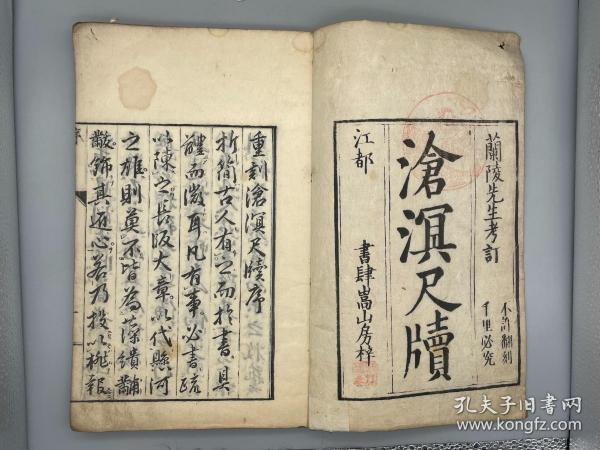 蘭陵先生考訂
不許翻刻
千里必究
滄溟尺牘
江都
書肆嵩山房梓
重刻滄溟尺牘序
折簡古人有之而於書具
體而微耳凡有事必書疏
以陳之長版大章以代懸河
之雄則莫不皆為藻繢黼
黻飾其匠心若乃投以桃報
序
孔夫子旧书网
www.kongfz.com